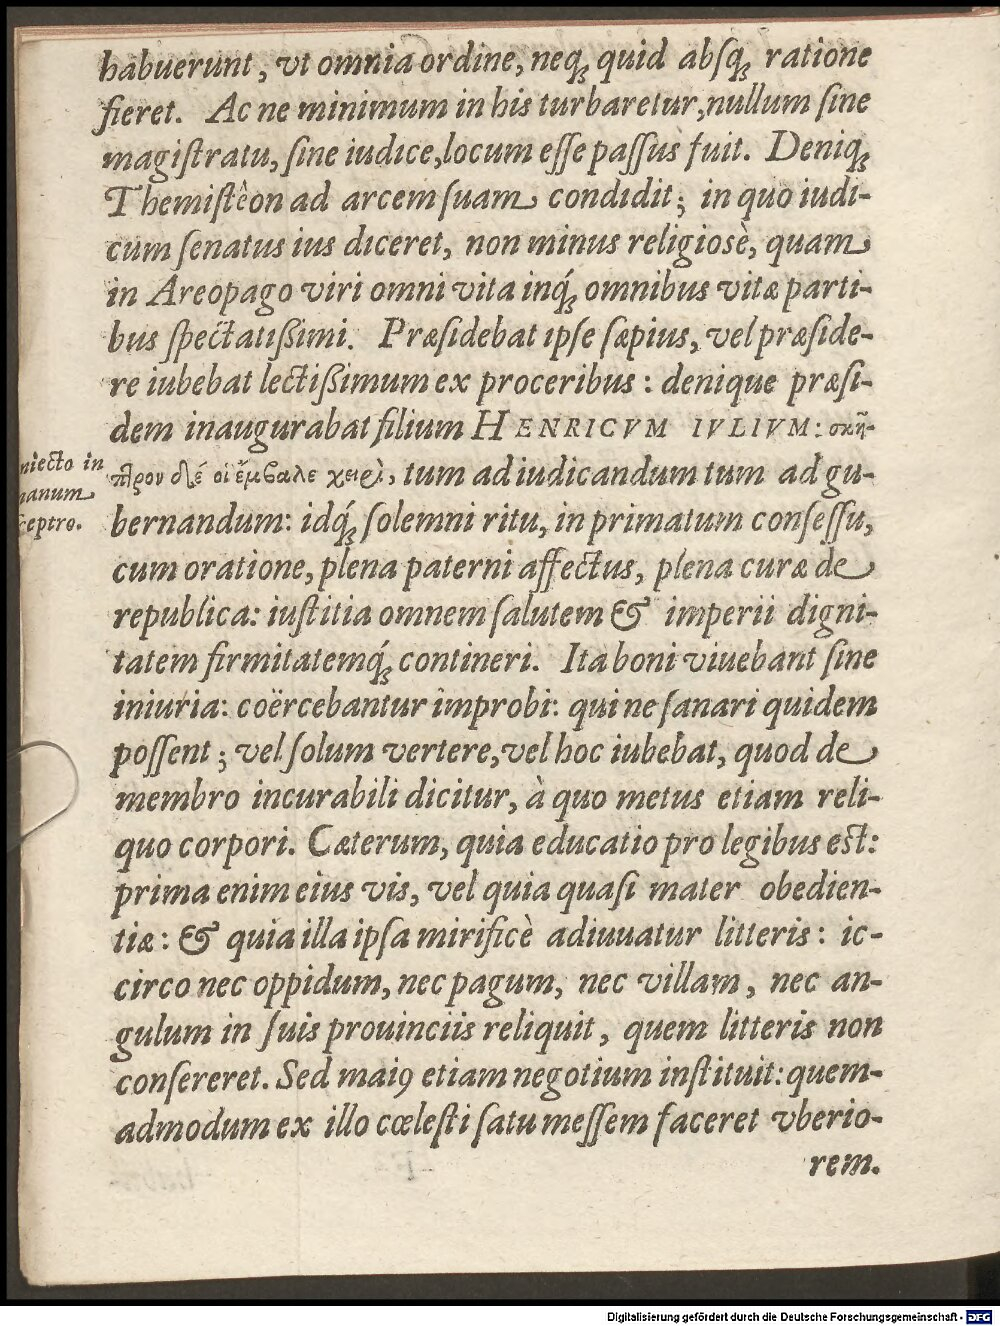 habuerunt, vt omnia ordine, neq; quid absq; ratione
fieret. Ac ne minimum in his turbaretur, nullum sine
magistratu, sine iudice, locum esse passus fuit. Deniq;
Themistêon ad arcem suam condidit; in quo iudi-
cum senatus ius diceret, non minus religiosè, quam
in Areopago viri omni vita inq́; omnibus vitæ parti-
bus spectatißimi. Præsidebat ipse sæpius, vel præside-
re iubebat lectißimum ex proceribus: denique præsi-
dem inaugurabat filium HENRICVM IVLIVM: σκῆ-
niecto in
manum
ceptro.
πτρον δέ οἱ ἔμβαλε χειρὶ, tum ad iudicandum tum ad gu-
bernandum: idq́; solemni ritu, in primatum consessu,
cum oratione, plena paterni affectus, plena curæ de
republica: iustitia omnem salutem & imperii digni-
tatem firmitatemq́; contineri. Ita boni viuebant sine
iniuria: coërcebantur improbi: qui ne sanari quidem
possent; vel solum vertere, vel hoc iubebat, quod de
membro incurabili dicitur, à quo metus etiam reli-
quo corpori. Cæterum, quia educatio pro legibus est:
prima enim eius vis, vel quia quasi mater obedien-
tiæ: & quia illa ipsa mirificè adiuuatur litteris: ic-
circo nec oppidum, nec pagum, nec villam, nec an-
gulum in suis prouinciis reliquit, quem litteris non
consereret. Sed maiꝯ etiam negotium instituit: quem-
admodum ex illo cœlesti satu messem faceret vberio-
rem.
Digitalisierung gefördert durch die Deutsche Forschungsgemeinschaft - DFG